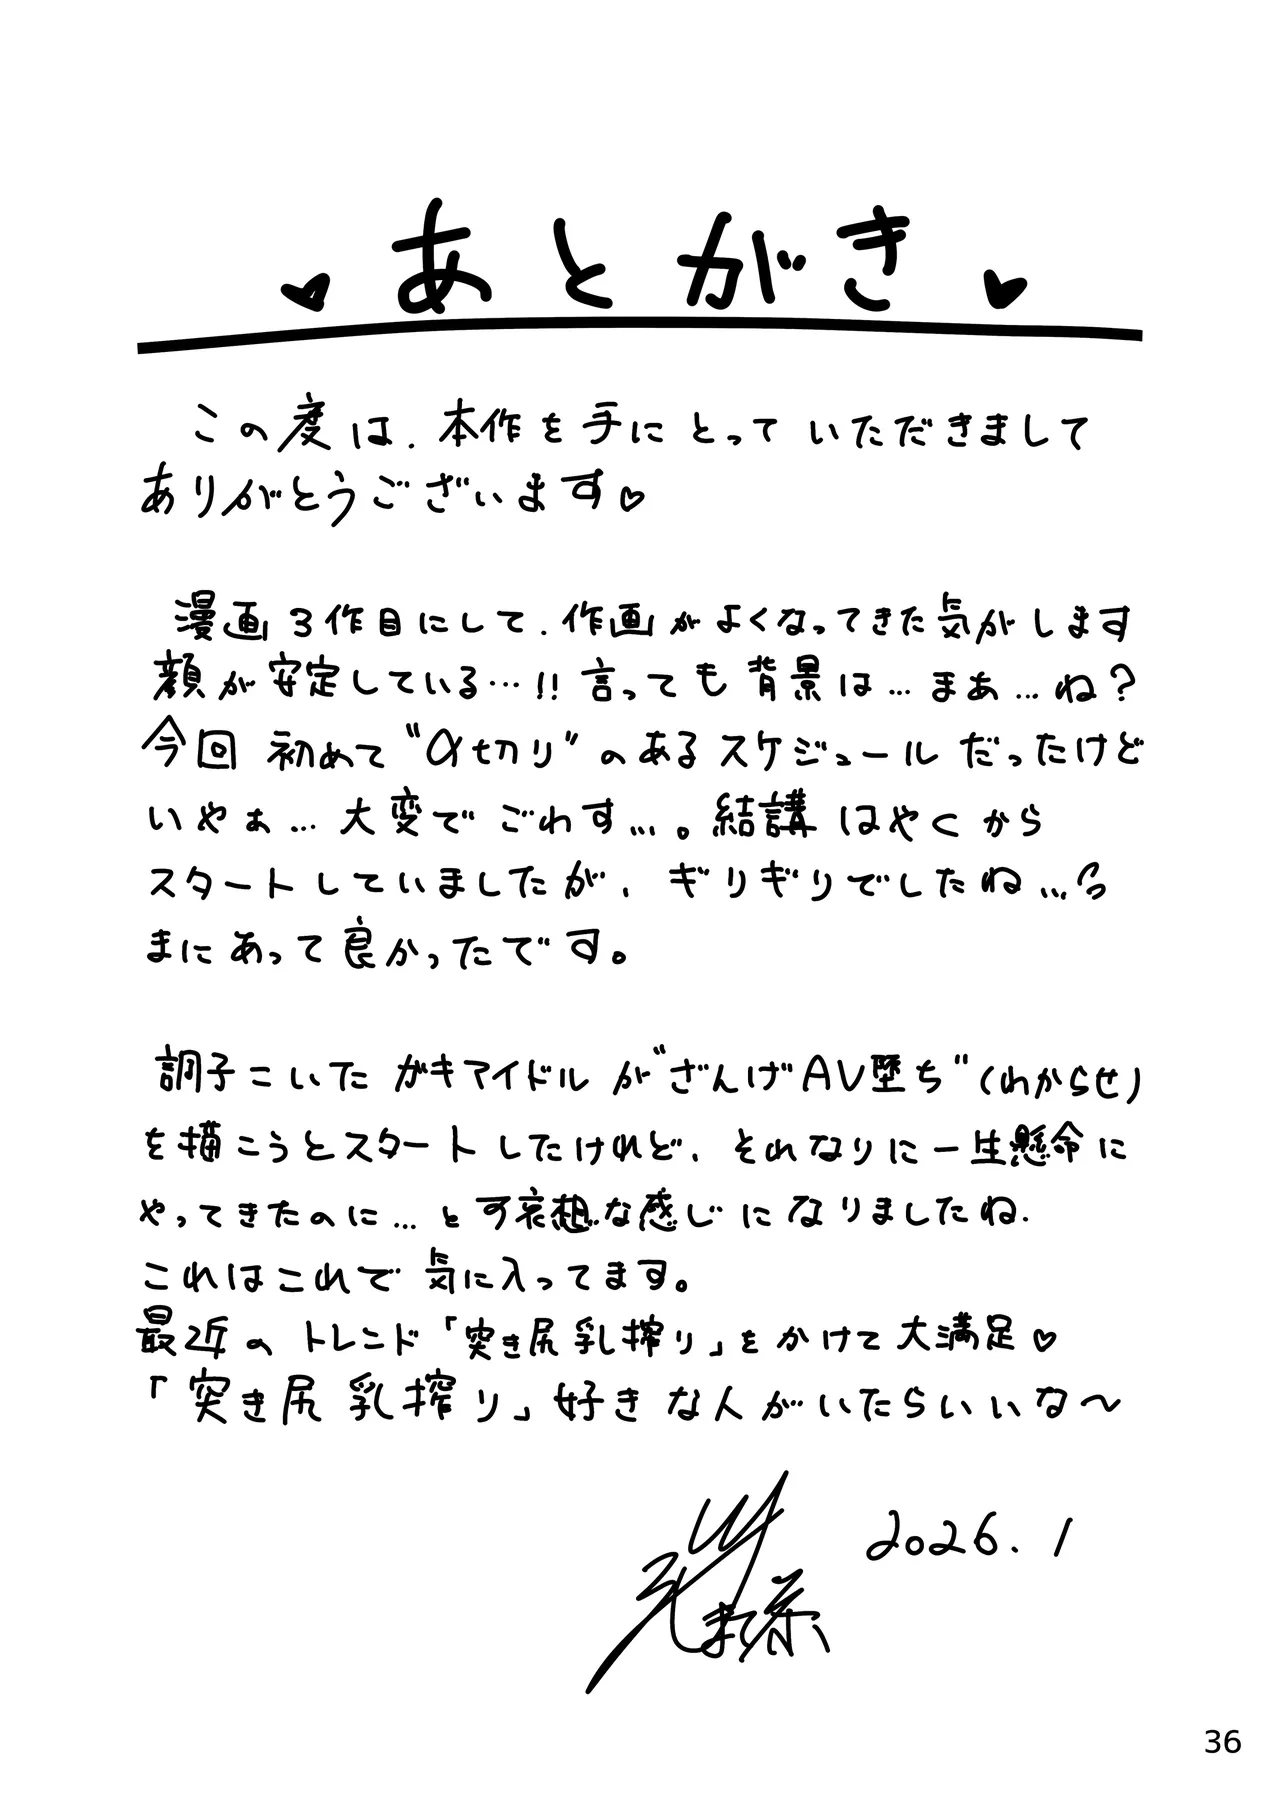 あとがき
この度は、本作を手にとっていただきまして
ありがとうございます♡
漫画3作目にして、作画がよくなってきた気がします
顔が安定している…!! 言っても背景は…まあ…ね?
今回初めて"〆切り"のあるスケジュールだったけど
いやぁ…大変でごわす…。結講はやくから
スタートしていましたが、ギリギリでしたね…
まにあって良かったです。
調子こいたガキアイドルが"ざんげAV墜ち"(わからせ)
を描こうとスタートしたけれど、それなりに一生懸命に
やってきたのに…と可哀想な感じになりましたね.
これはこれで気に入ってます。
最近のトレンド「突き尻乳搾り」をかけて大満足♡
「突き尻乳搾り」好きな人がいたらいいな〜
2026.1
36